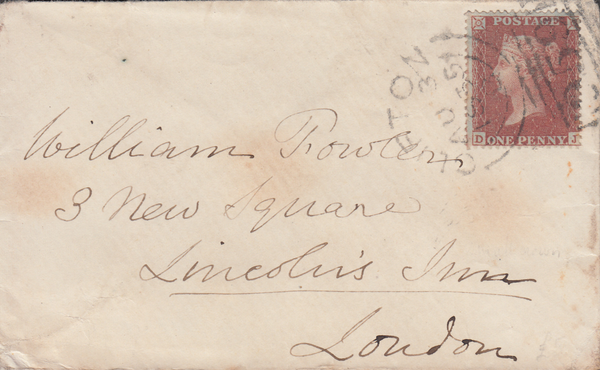 POSTAGE
ONE PENNY
D J
William Fowler
3 New Square
Lincoln's Inn
London